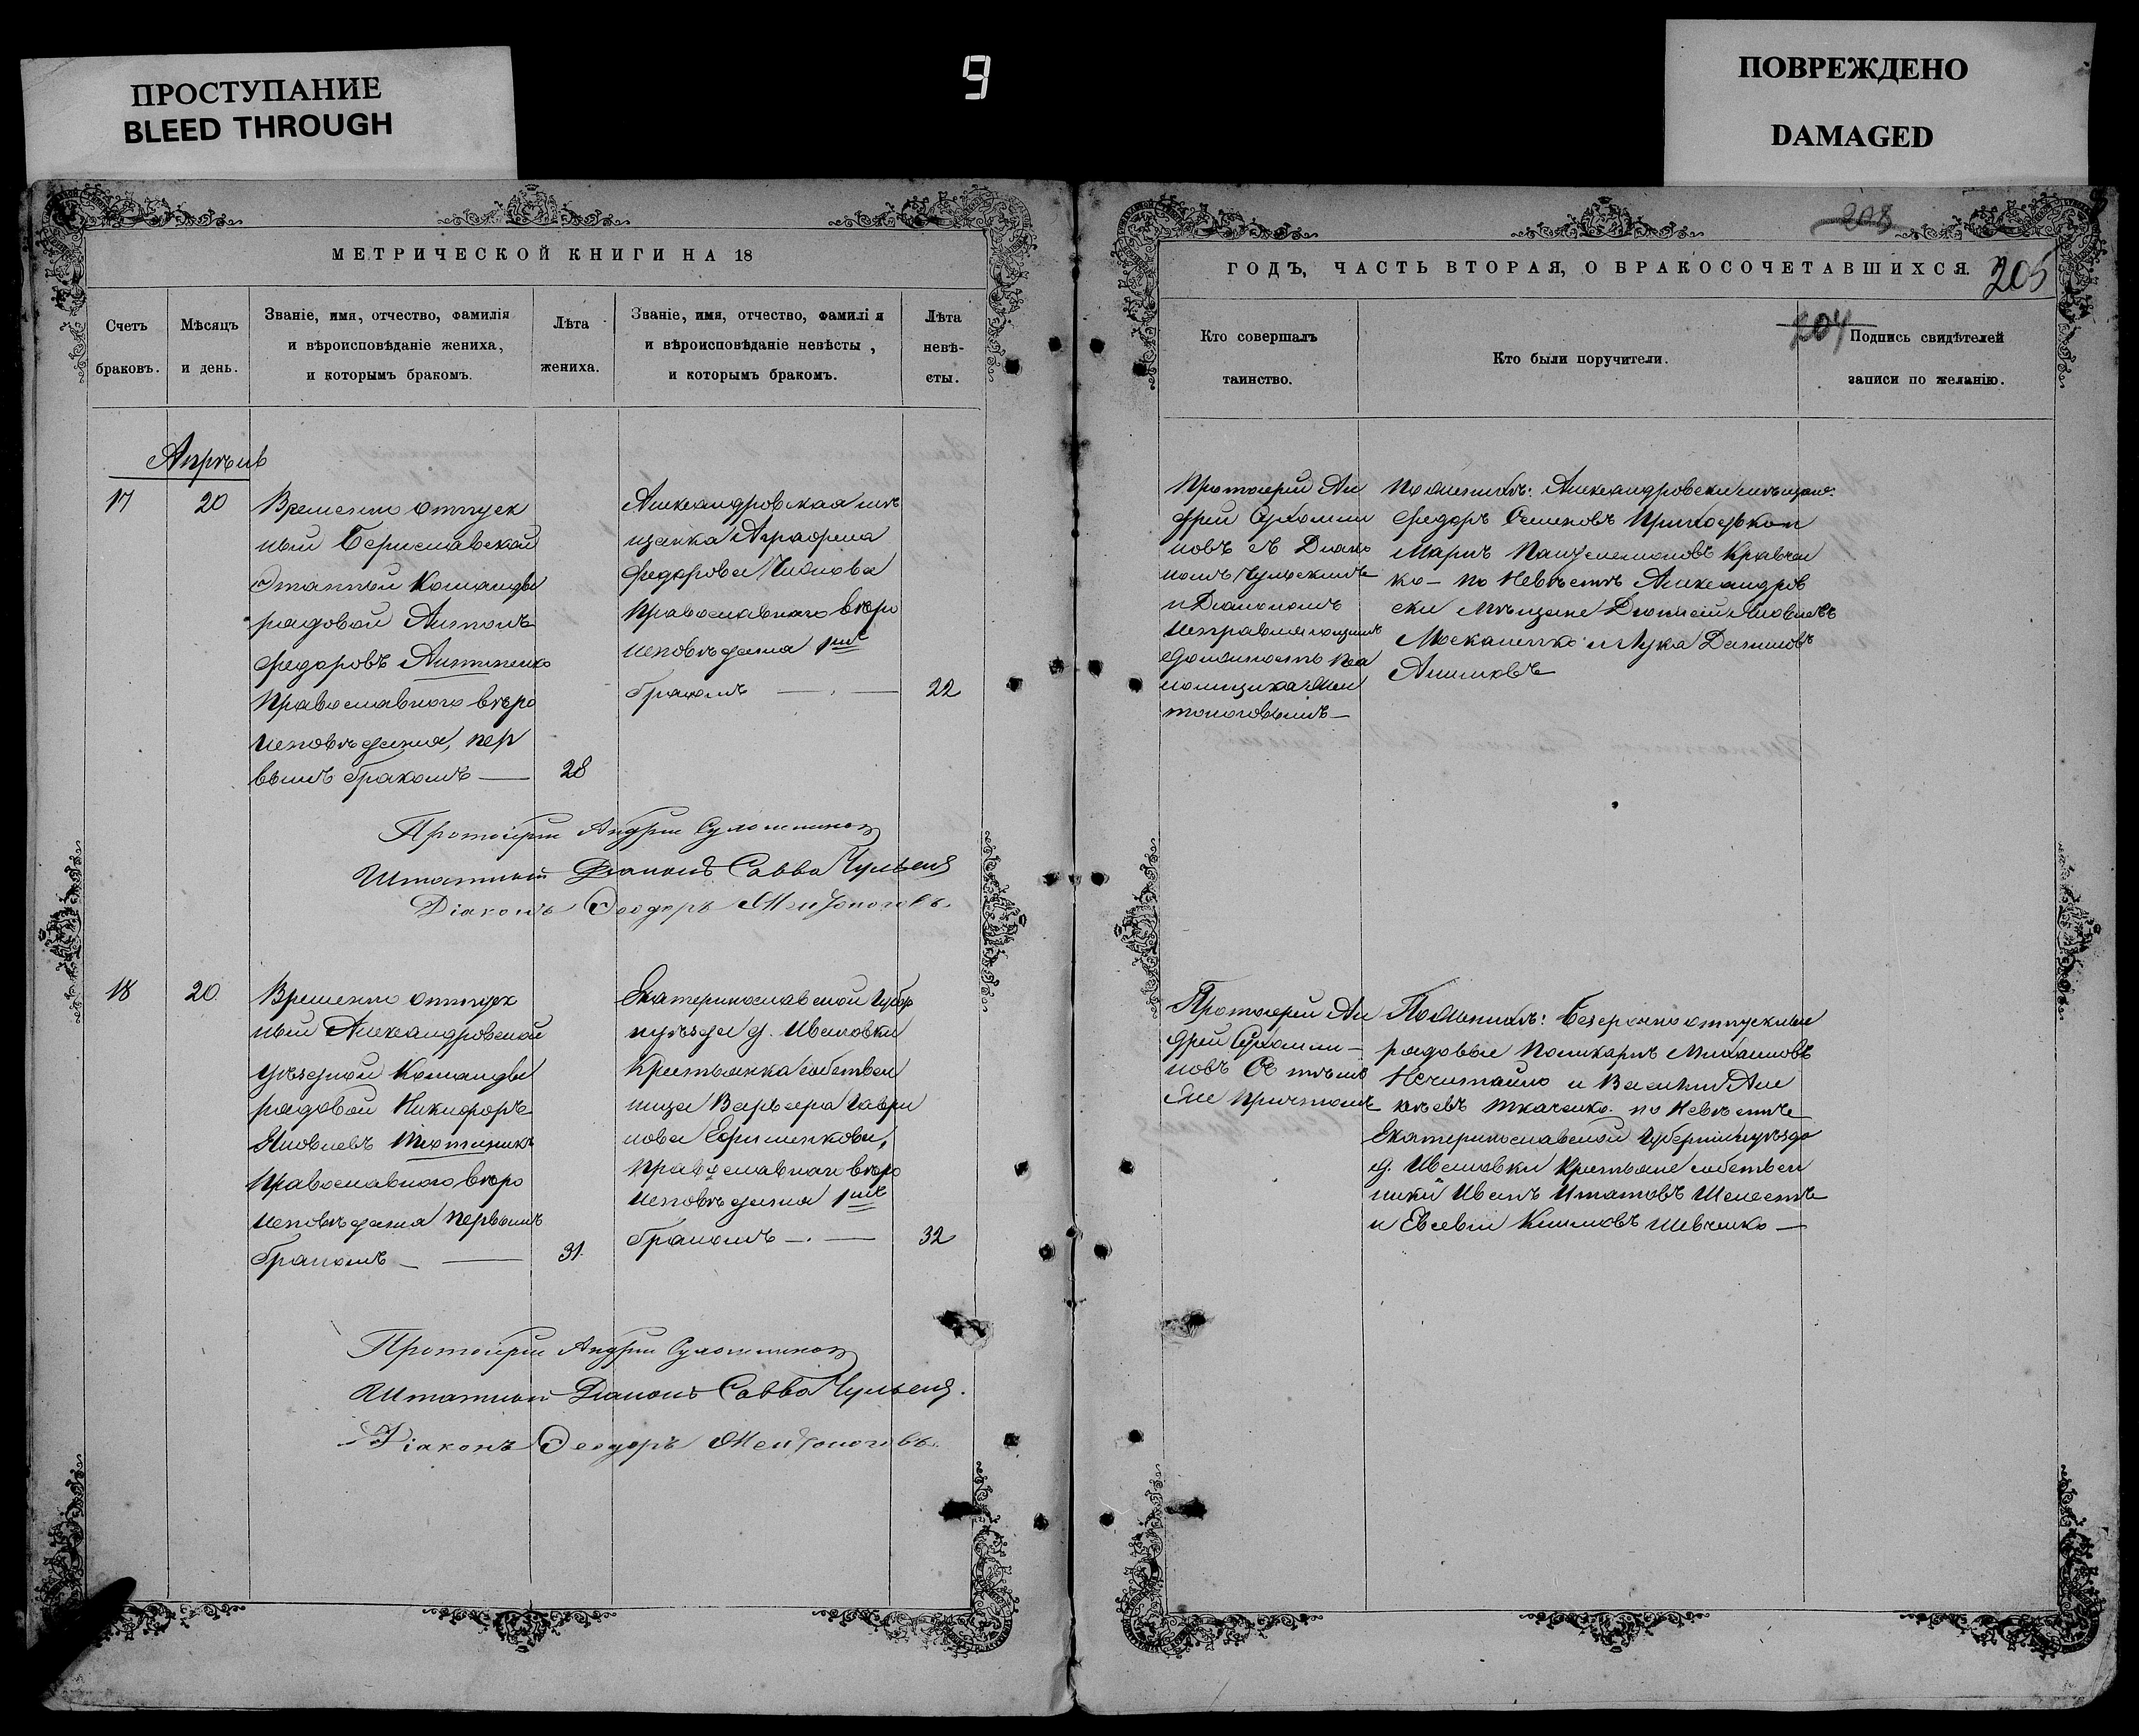 ПРОСТУПАНИЕ
BLEED THROUGH
9
ПОВРЕЖДЕНО
DAMAGED
МЕТРИЧЕСКОЙ КНИГИ НА 18
Счетъ браковъ.
Мѣсяцъ и день.
Званіе, имя, отчество, фамилія
и вѣроисповѣданіе жениха,
и которымъ бракомъ.
Лѣта
жениха.
Званіе, имя, отчество, фамилія
и вѣроисповѣданіе невѣсты,
и которымъ бракомъ.
Лѣта
невѣ-
сты.
Апрѣль
17
20
Временно отпуск
ный Бериславской
Этапной Команды
рядовой Антонъ
Федоровъ
Православнаго вѣро
исповѣданія, пер
вымъ бракомъ —
28
Александровская мѣ
щанка Агрофена
Федорова
Православнаго вѣро
исповѣданія 1мъ
бракомъ —
22
Протоіерей Андрей
Штатный Діаконъ Савва
Діаконъ Феодоръ
18
20
Временно отпуск
ный Александровской
уѣздной Команды
рядовой Никифоръ
Яковлевъ
Православнаго вѣро
исповѣданія первымъ
бракомъ —
31
Екатеринославской Губер
и уѣзда д. Ивановки
Крестьянка собствен
ница Варвара Гаври
лова Ефименкова,
Православнаго вѣро
исповѣданія 1мъ
бракомъ —
32
Протоіерей Андрей
Штатный Діаконъ Савва
Діаконъ Феодоръ
208
ГОДЪ, ЧАСТЬ ВТОРАЯ, О БРАКОСОЧЕТАВШИХСЯ.
205
204
Кто совершалъ
таинство.
Кто были поручители.
Подпись свидѣтелей
записи по желанію.
Протоіерей Ан
дрей Сухомли
новъ съ Діако
номъ
и Діакономъ
исправляющимъ
должность
По женихѣ: Александровскіе мѣщане
Федоръ Семеновъ Приходько и
Маркъ Пантелемоновъ Кравчен
ко — по Невѣстѣ Александров
скіе Мѣщане Яковлевъ
и Лука Даниловъ
Протоіерей Ан
дрей Сухомли —
новъ съ тѣмъ
же причтомъ
По женихѣ: безсрочно отпускные
рядовые Поликарпъ Михайловъ
Нечитайло и Василій Але
ксѣевъ Ткаченко. по Невѣстѣ
Екатеринославской Губерніи и уѣзда
д. Ивановки Крестьяне собствен
ники Иванъ Игнатовъ Шелестъ
и Евсевій Климовъ Шевченко —